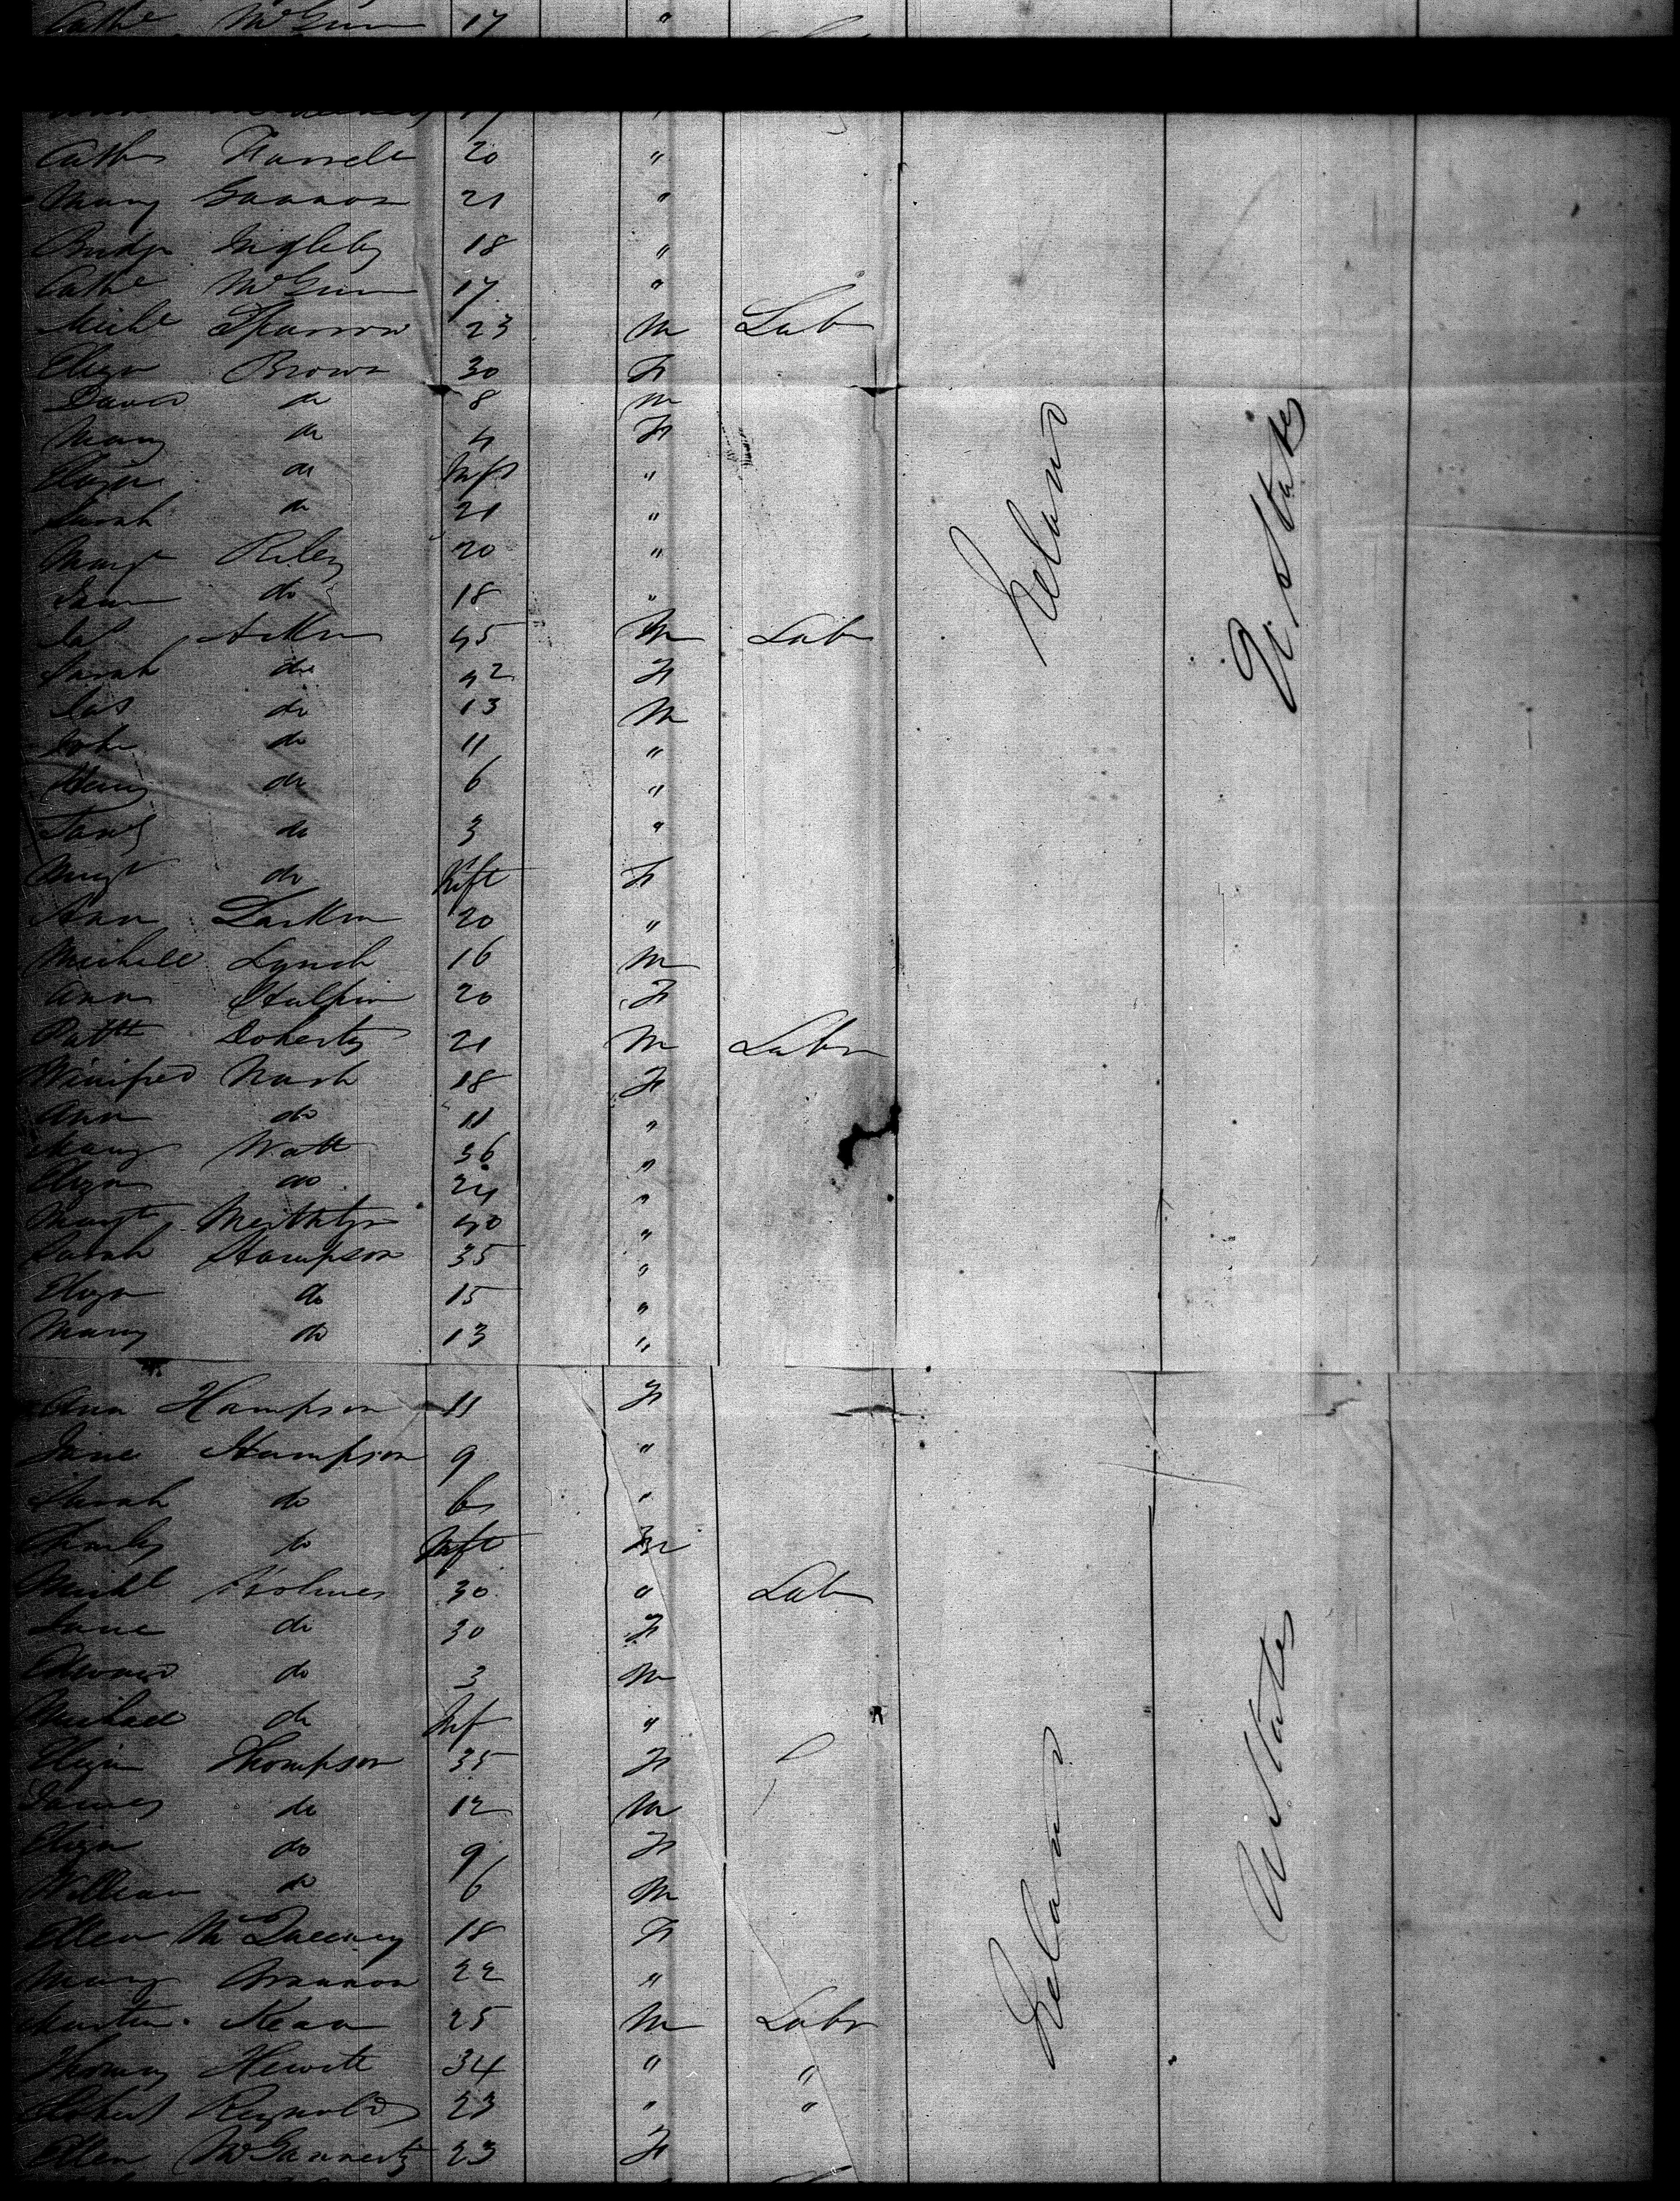 Cathe McGinn 17 "
Cath Farrell 20 "
Mary Gannon 21 "
Bridgt Ingleby 18 "
Cathe McGinn 17 "
Michl Sparrow 23 M Lab
Eliza Brown 30 F
David do 8 M
Mary do 4 F
Eliza do Inft "
Sarah do 21 "
Margt Riley 20 "
Jane do 18 "
Jas 45 M Lab
Sarah do 42 F
Jas do 13 M
John do 11 "
Henry do 6 "
do 3 "
Margt do Inft F
Ann Larkin 20 "
Michael Lynch 16 M
Ann Halpin 20 F
Patk Doherty 21 M Labr
Winifred Nash 18 F
Ann do 11 "
Mary Watt 36 "
Eliza do 24 "
Margt 40 "
Sarah Hampson 35 "
Eliza do 15 "
Mary do 13 "
Ireland
U. States
Ann Hampson 11 F
Jane Hampson 9 "
Sarah do 6 "
Charles do Inft M
Michl Holmes 30 " Lab
Jane do 30 F
Edward do 3 M
Michael do Inf "
Eliza Thompson 35 F
James do 12 M
Eliza do 9 F
William do 6 M
Ellen 18 F
Mary Brannon 22 "
Martin Kean 25 M Labr
Thomas Hewitt 34 " "
Robert Reynolds 23 " "
Ellen 23 F
Ireland
U States